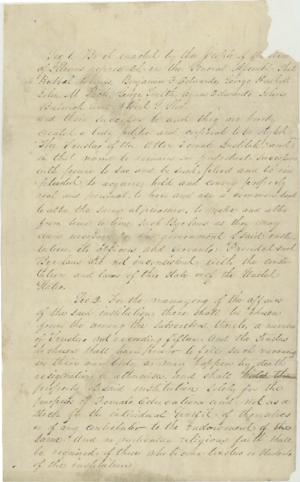 Sec 1. Be it enacted by the people of the State
of Illinois represented in the General Assembly That
Benjamin F. Edwards, George Haskell
John M. Peck, George Smith, Cyrus Edwards,
and
and their successors be and they are hereby
created a body politic and corporate to be styled
"The Trustees of the Alton Female Institute," and
in that name to remain in perpetual succession
with power to sue and be sued, plead and be im-
pleaded to acquire hold and convey property
real and personal to have and use a common seal
to alter the same at pleasure, to make and alter
from time to time such Bye laws as they may
deem necessary for the government of said insti-
tution, its officers and servants. Provided such
Bye laws are not inconsistent with the consti-
tution and laws of this State or of the United
States.
Sec 2. For the managing of the affairs
of the said institution there shall be chosen
from among the subscribers thereto, a number
of Trustees not exceeding fifteen. And the Trustees
so chosen shall have power to fill such vacancy
in their own body as may happen by death
resignation or otherwise. And shall hold the
property of said institution solely for the
purposes of Female Education and not as a
stock for the individual benefit of themselves
or of any contributor to the endowment of the
same. And no particular religious faith shall
be required of those who become trustees or students
of the institution.